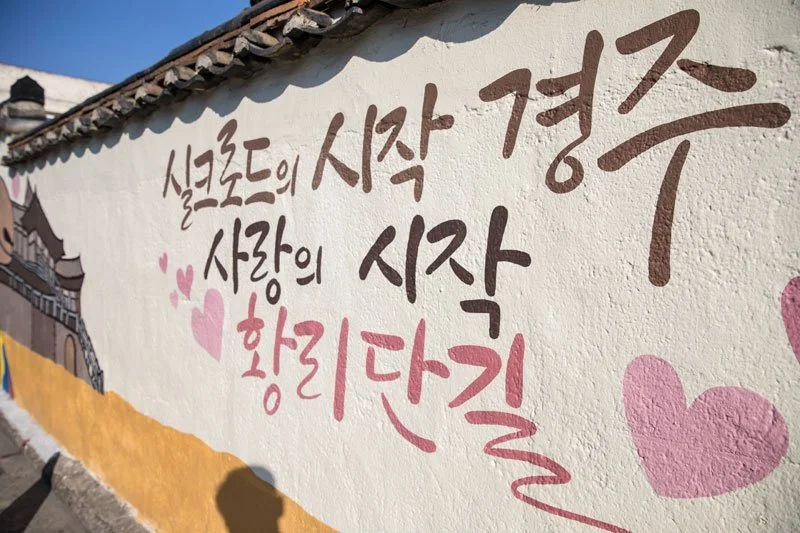 실크로드의 시작 경주
사랑의 시작
황리단길